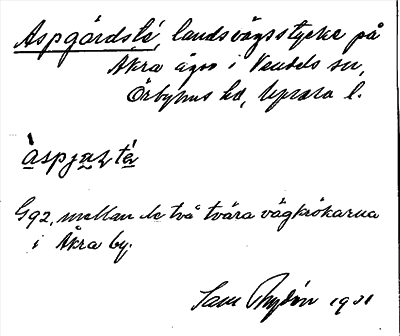 Aspgårdstè, landsvägsstycke på
Åkra ägor i Vendels sn,
Örbyhus hd, Uppsala l.
àspjaʐtè
G92, mellan de två tvära vägkrökarna
i Åkra by.
Sam Rydén 1931